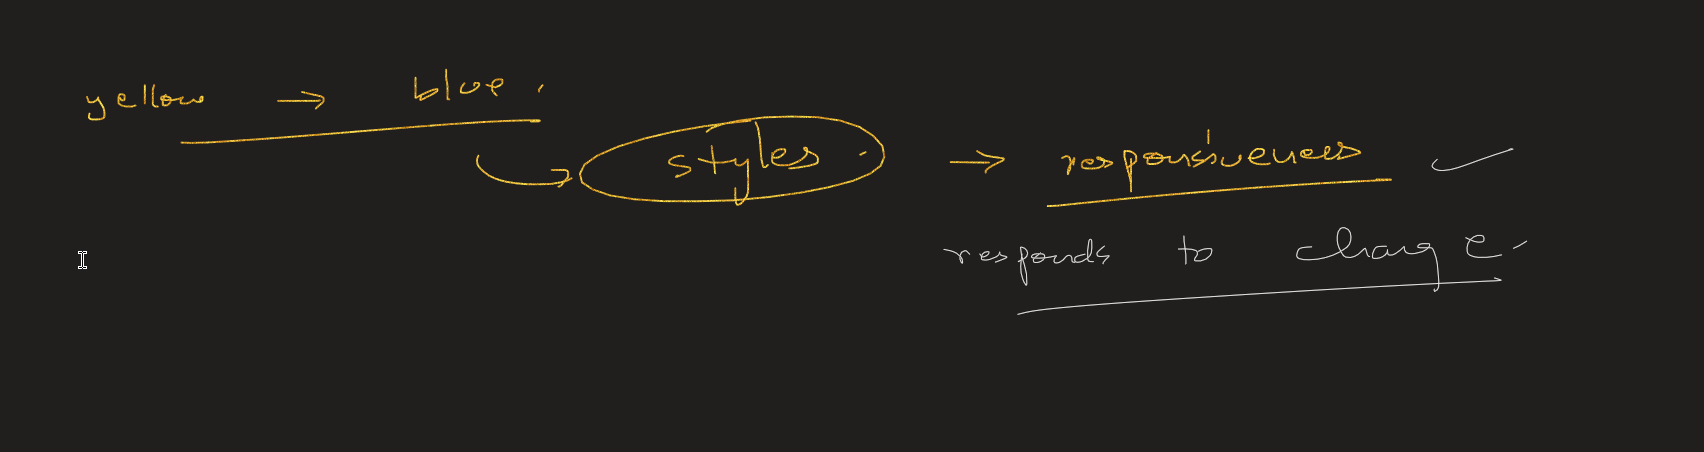 yellow → blue.
styles. → responsiveness
responds to change.